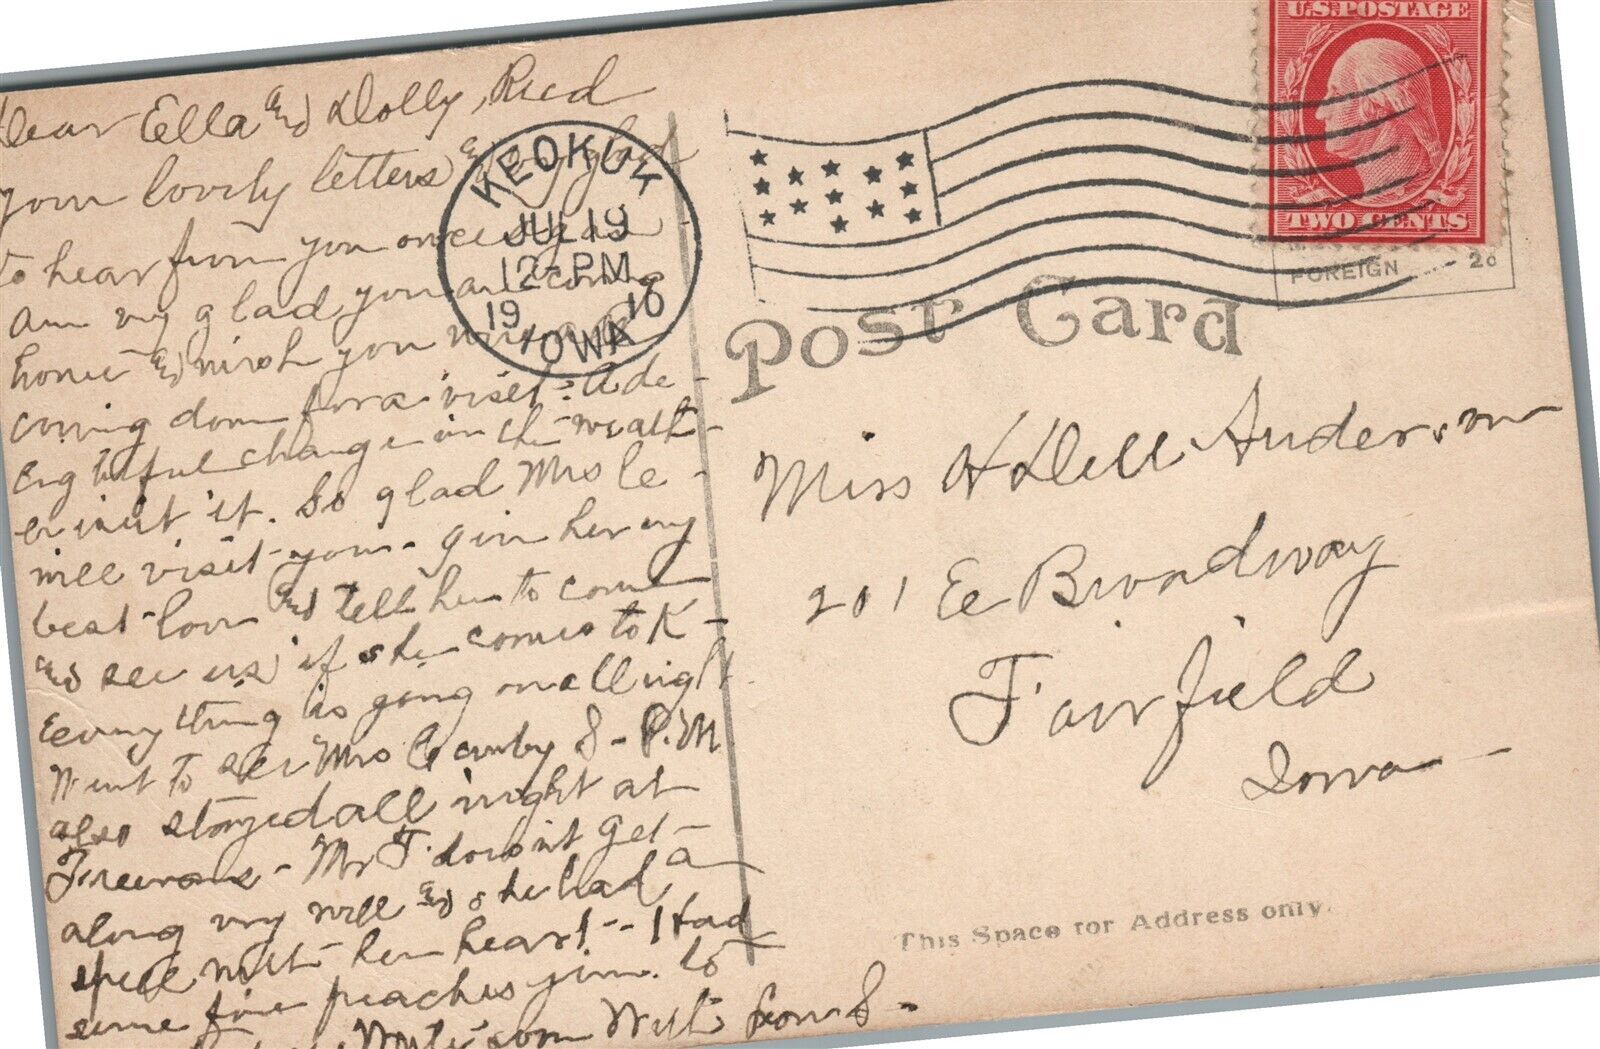 Dear Ella and Dolly, Recd
your lovely letters & very glad
to hear from you once
Am very glad you are coming
home and wish you
coming down for a visit - A de-
lightful change in the weath-
er isn't it. So glad Mrs Le-
will visit you - give her my
best love and tell her to come
and see us if she comes to K -
Everything is going on all right.
Went to see Mrs 8 - P.M
also stayed all night at
Freemans - Mr F. doesn't get
along very well and she had a
spell with her heart - I had
some fine peaches
Write soon With Love
KEOKUK
JUL 19
12 - PM
19 10
IOWA
U.S. POSTAGE
TWO CENTS
FOREIGN 2c
Post Card
Miss Dell Anderson
201 E Broadway
Fairfield
Iowa -
This Space for Address only.